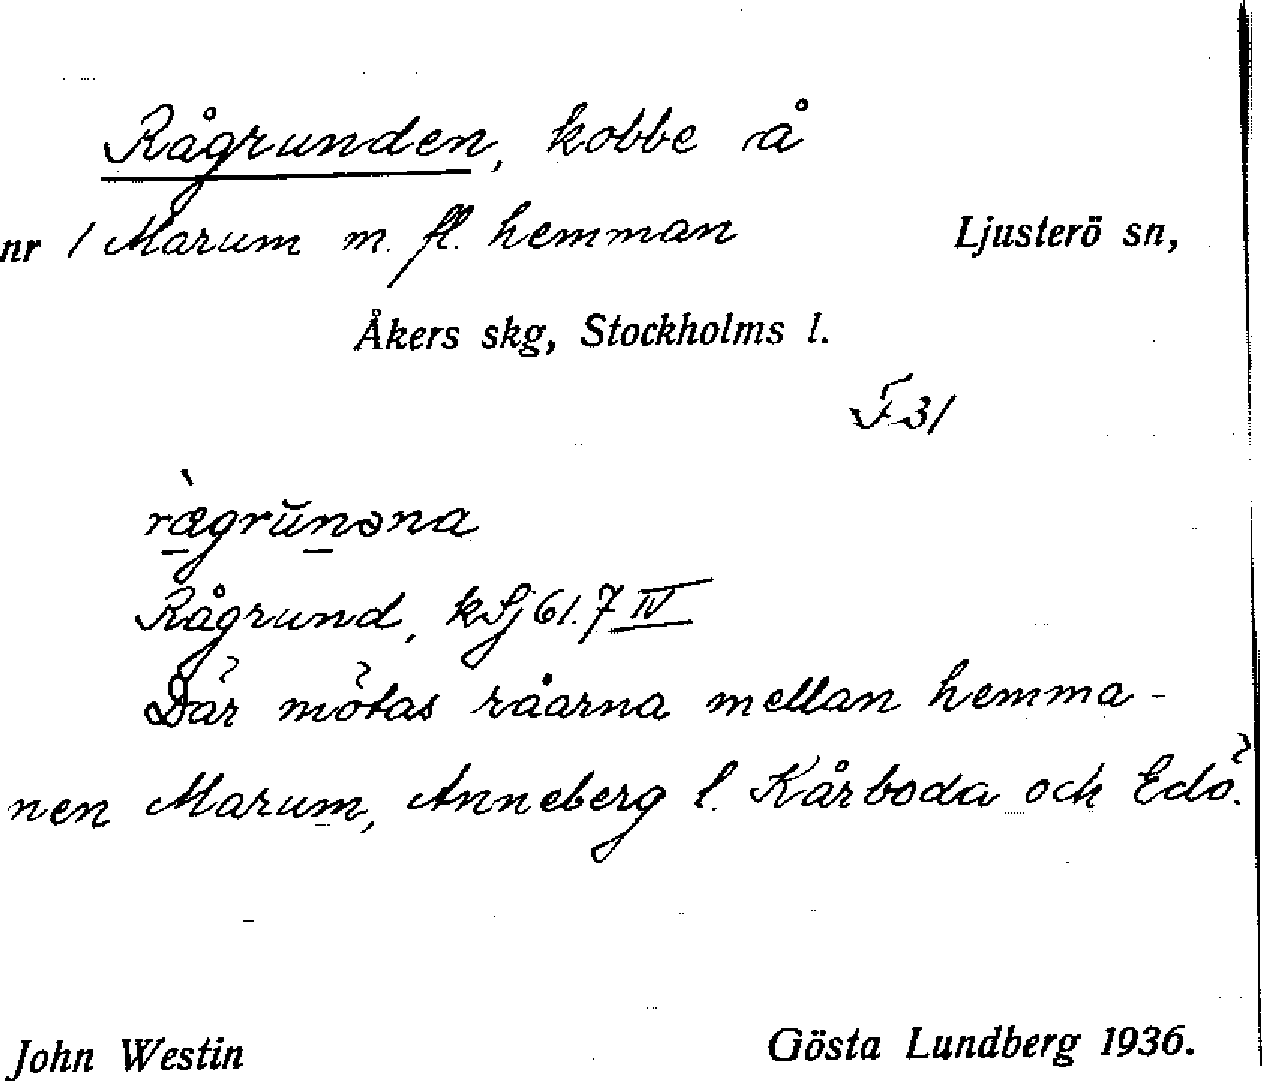 Rågrunden, kobbe å
nr 1 Marum m. fl. hemman Ljusterö sn,
Åkers skg, Stockholms l.
F 31
rægrŭnəna
Rågrund, kSj 61.7 IV
Där mötas råarna mellan hemma-
nen Marum, Anneberg l. Kårboda och Edö.
John Westin Gösta Lundberg 1936.